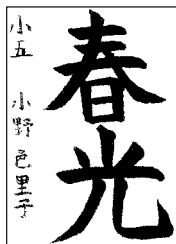 春光
小五 小野色里子